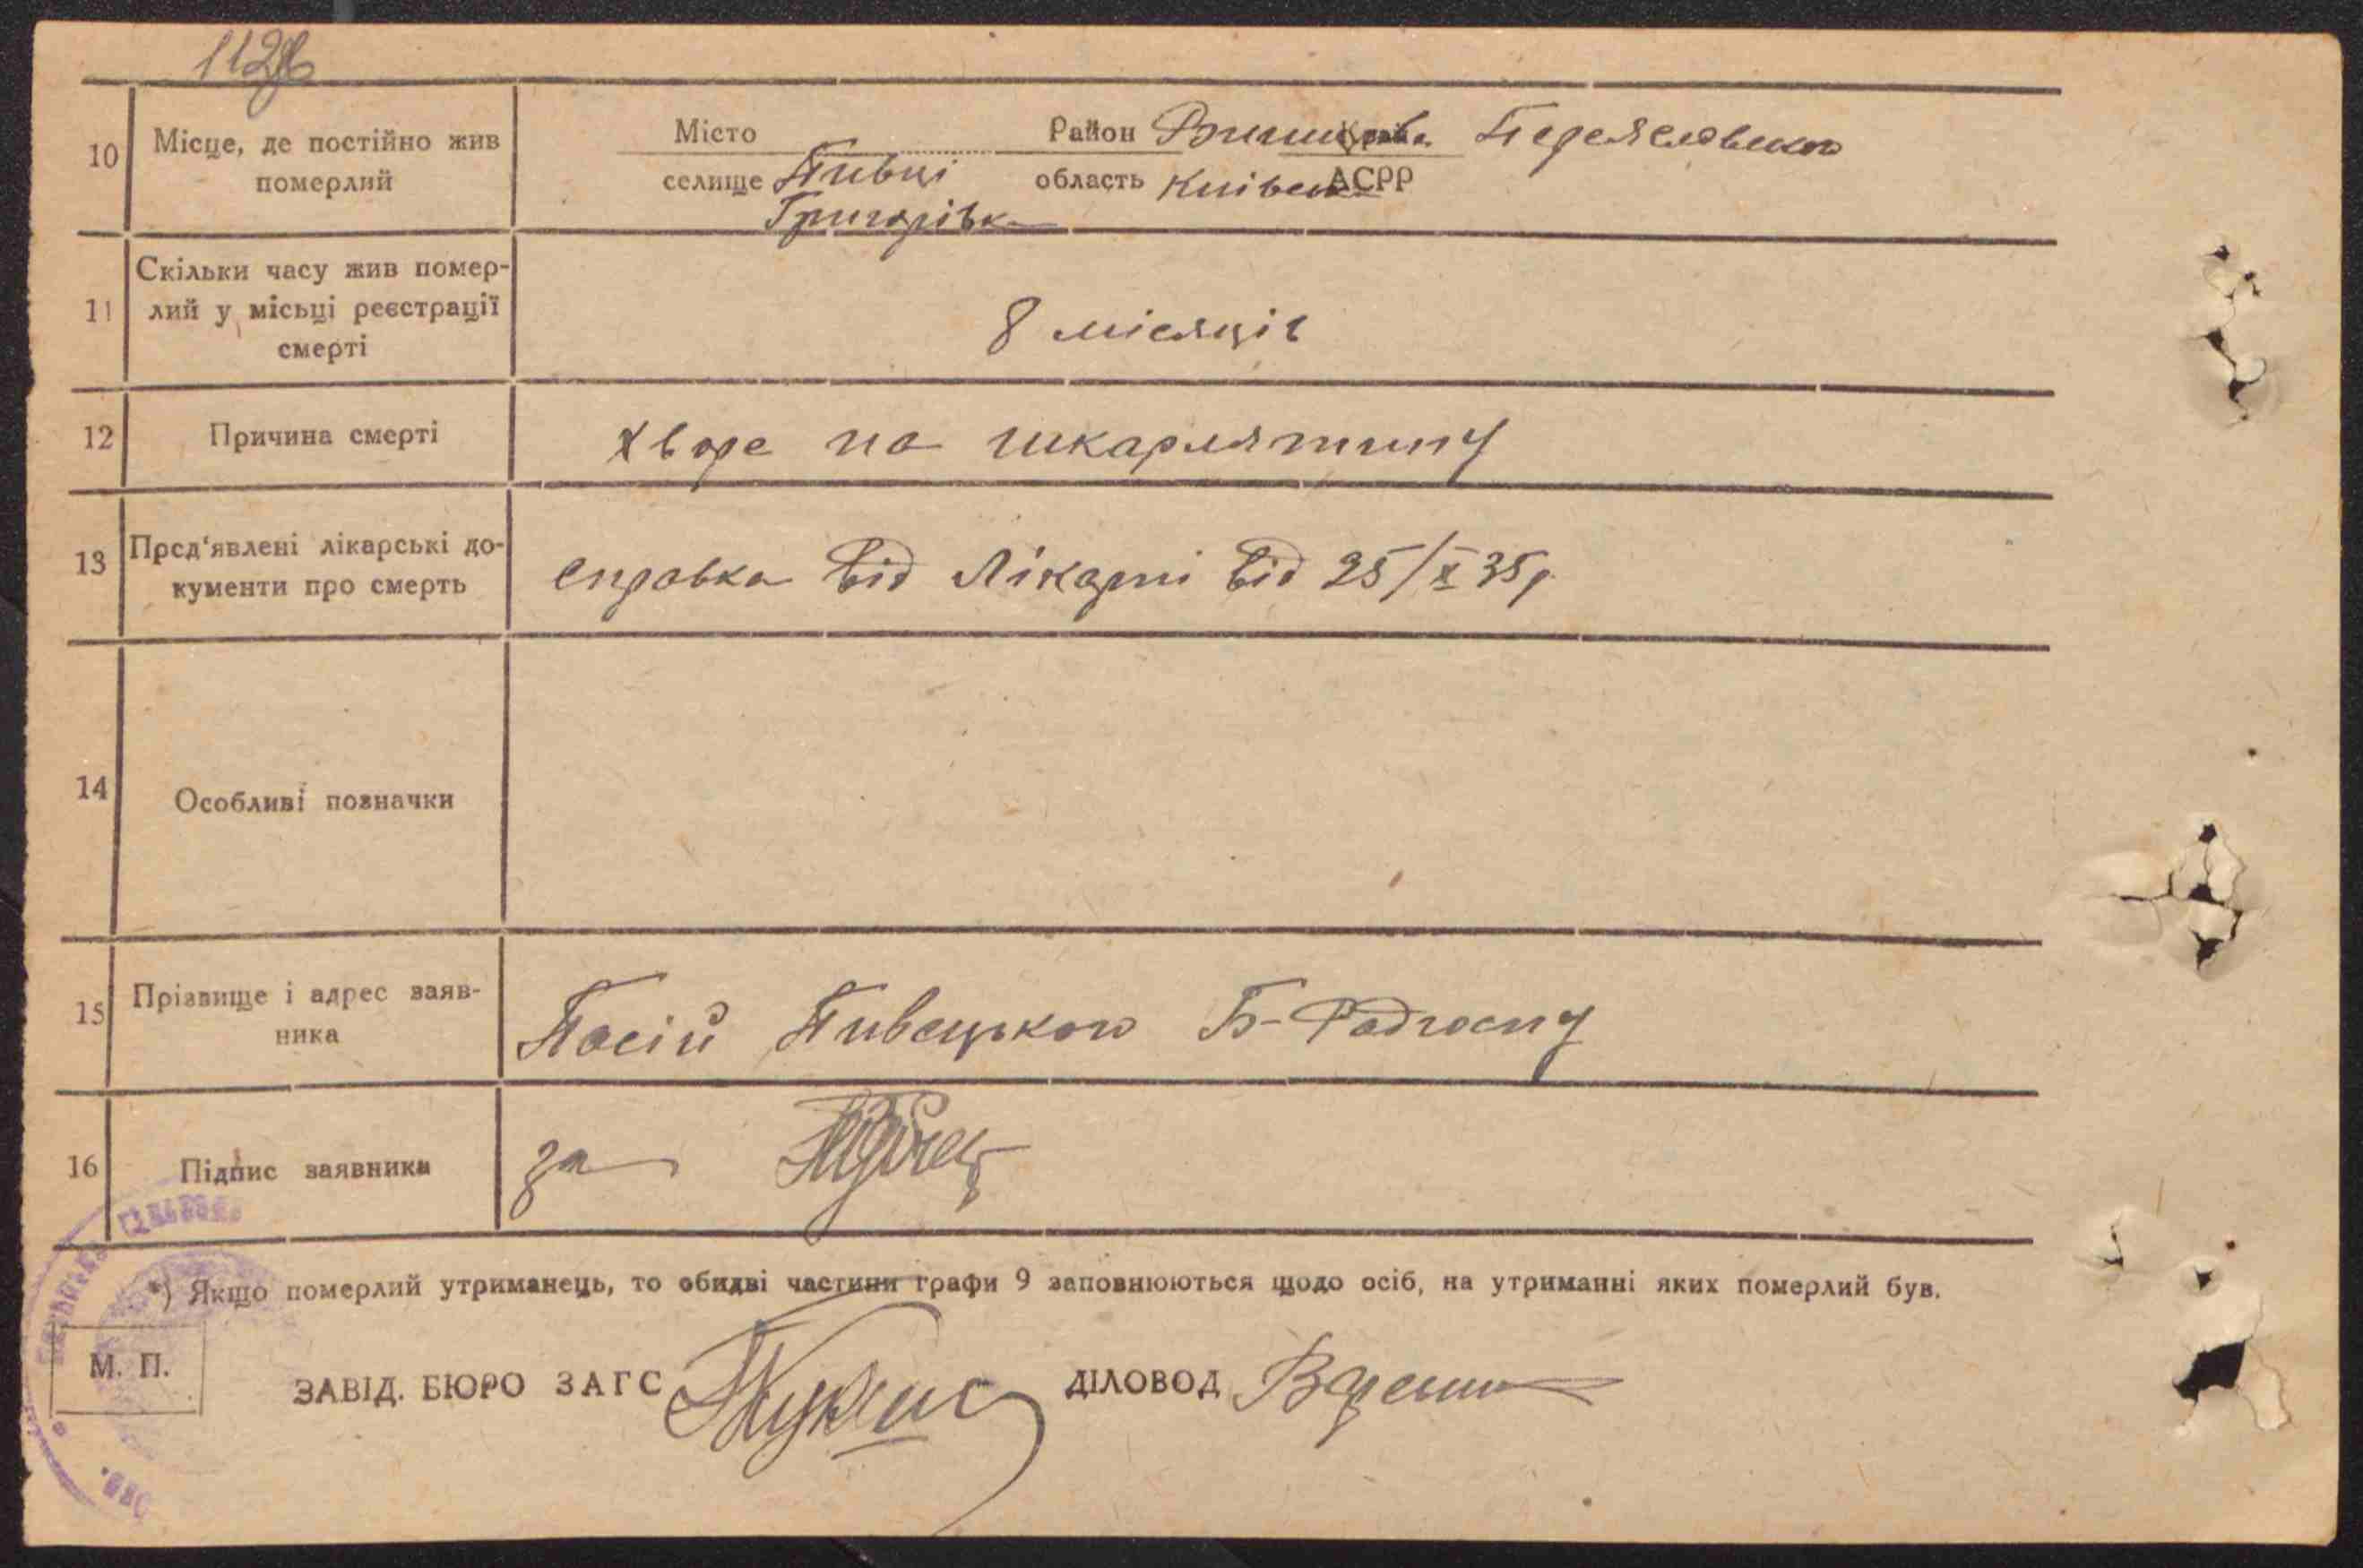 112
10 Місце, де постійно жив
померлий
Місто Район Переяславського
селище Пивці область Київська АСРР
Григорівка
11 Скільки часу жив помер-
лий у місьці реєстрації
смерті
8 місяців
12 Причина смерті хворе на шкарлятину
13 Прєд'явлені лікарські до-
кументи про смерть
справка від Лікарні від 25/X 35р.
14 Особливі позначки
15 Прізвище і адрес заяв-
ника
Посій Пивецького Б-Радгоспу
16 Підпис заявника за
*) Якщо померлий утриманець, то обидві частини графи 9 заповнюються щодо осіб, на утриманні яких померлий був.
М. П.
ЗАВІД. БЮРО ЗАГС ДІЛОВОД